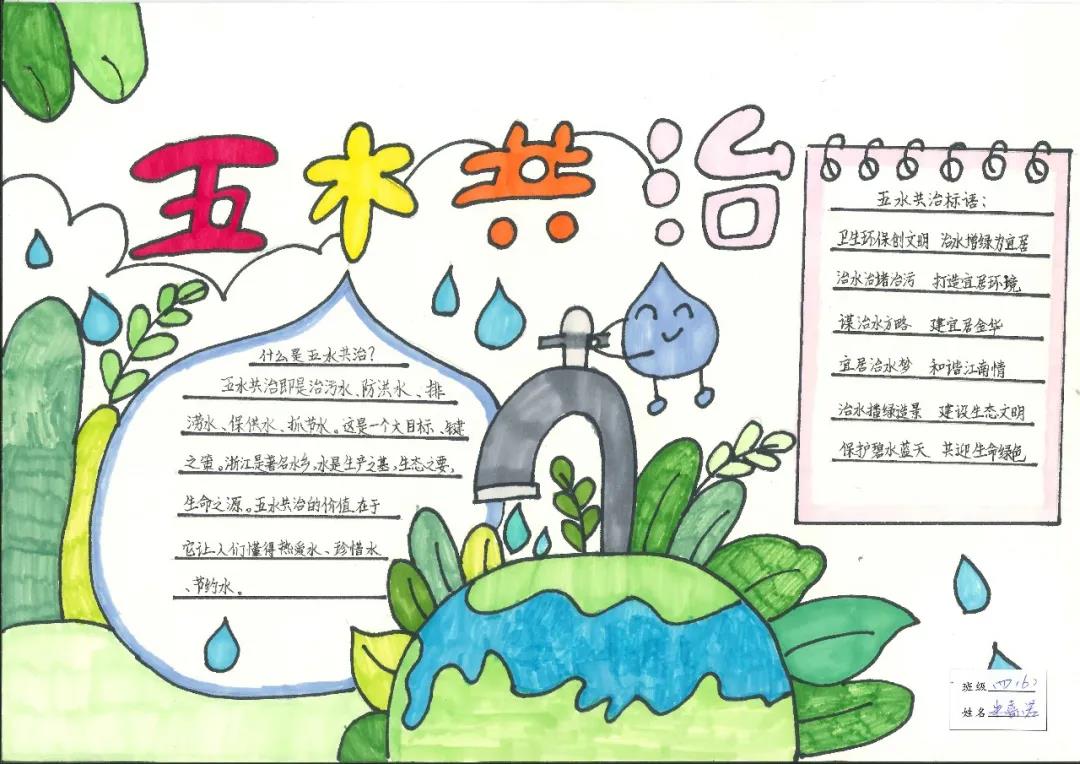 五水共治
什么是五水共治?
五水共治即是治污水、防洪水、排
涝水、保供水、抓节水。这是一个大目标、关键
之策。浙江是著名水乡,水是生产之基,生态之要,
生命之源。五水共治的价值,在于
它让人们懂得热爱水、珍惜水
、节约水。
五水共治标语:
卫生环保创文明 治水增绿为宜居
治水治堵治污 打造宜居环境
谋治水方略 建宜居金华
宜居治水梦 和谐江南情
治水增绿造景 建设生态文明
保护碧水蓝天 共迎生命绿色
班级 四(6)
姓名